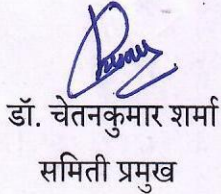 डॉ. चेतनकुमार शर्मा
समिती प्रमुख